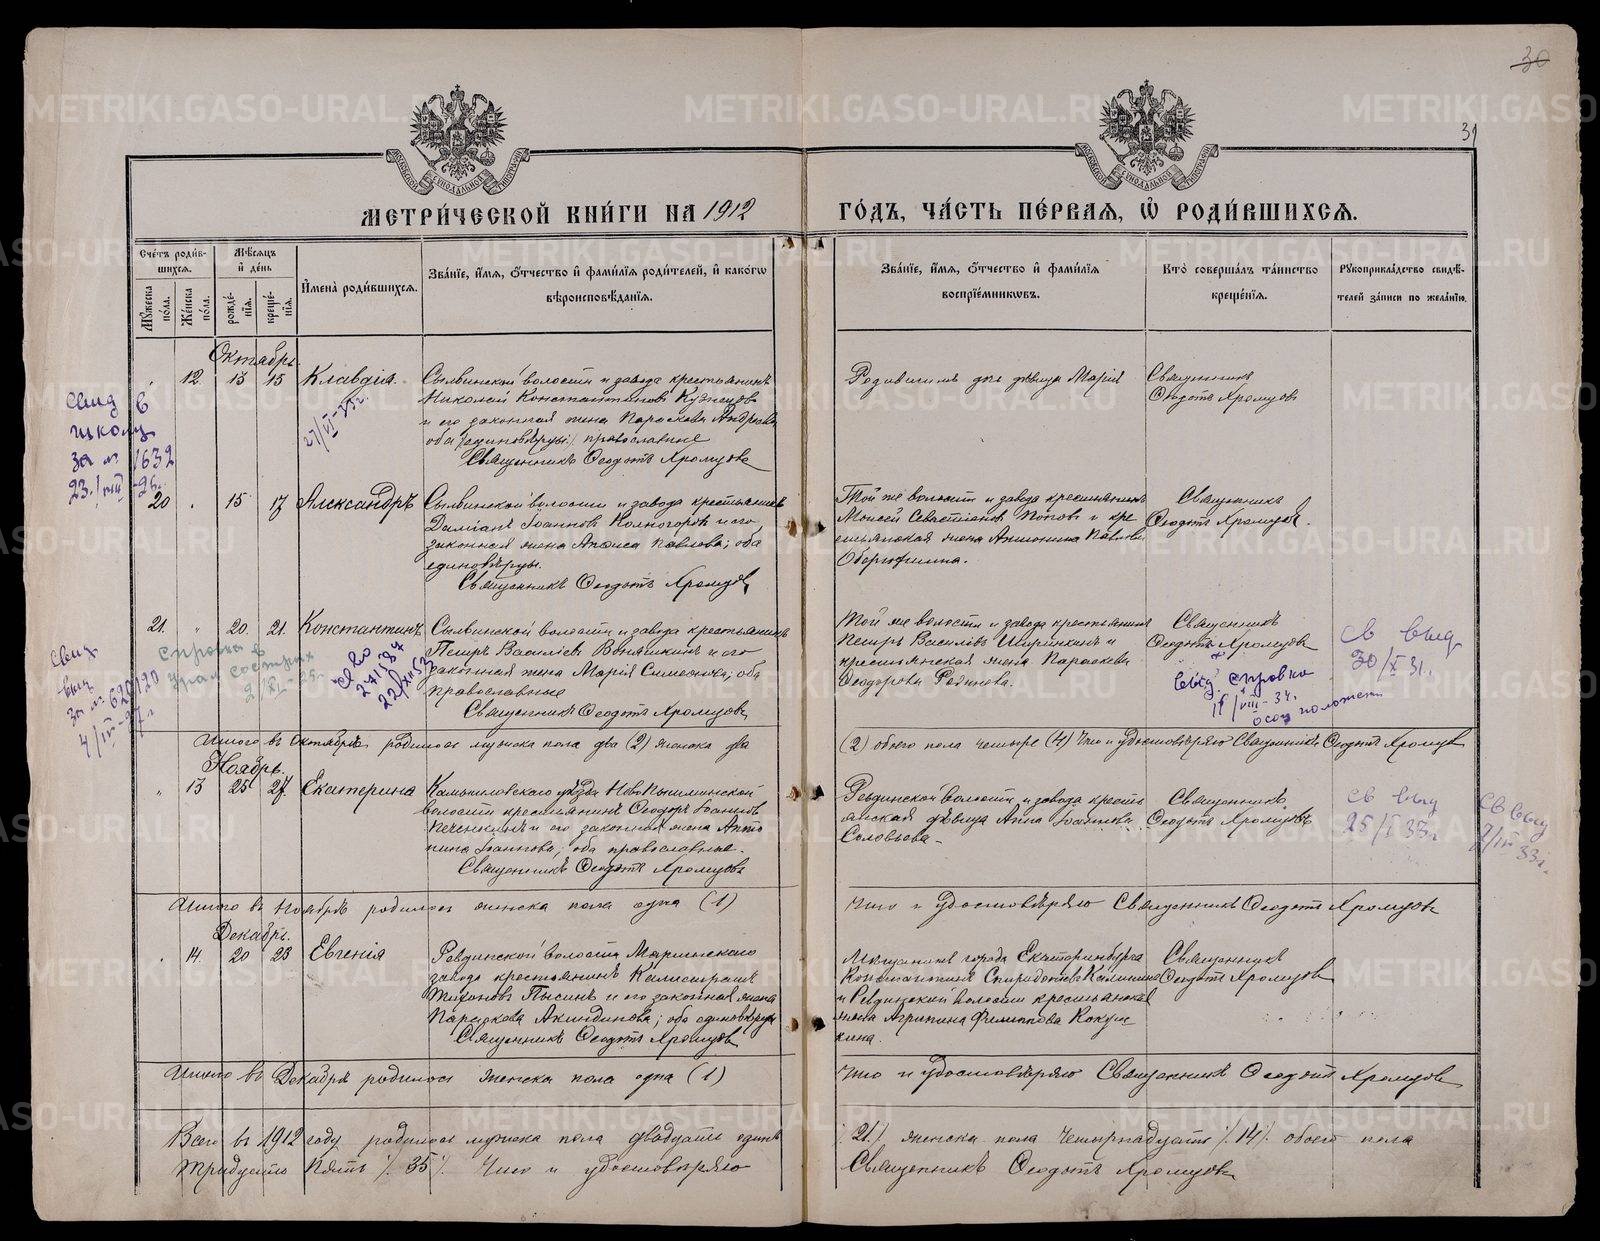 30
31
МЕТРИ́ЧЕСКОЙ КНИ́ГИ НА 1912
ГО́ДЪ, ЧА́СТЬ ПЕ́РВАЯ, Ѡ҆ РОДИ́ВШИХСѦ.
Сче́тъ роди́в-
шихсѧ.
Мѣ́сѧцъ
и҆ де́нь
Мꙋ́жеска по́ла.
Же́нска по́ла.
рожде́-
нїѧ.
креще́-
нїѧ.
И҆мена̀ роди́вшихсѧ.
Зва́нїе, и҆́мѧ, ѻ҆́тчество и҆ фами́лїѧ роди́телей, и҆ како́гѡ
вѣроисповѣ́данїѧ.
Зва́нїе, и҆́мѧ, ѻ҆́тчество и҆ фами́лїѧ
воспрїе́мникѡвъ.
Кто̀ соверша́лъ та́инство
креще́нїѧ.
Рꙋкоприкла́дство свидѣ́-
телей за́писи по жела́нїю.
Октябрь
12. 13 15 Клавдія.
Сылвинской волости и завода крестьянинъ
Николай Константиновъ Кузнецовъ
и его законная жена Параскева Андреева
оба (единовѣрцы) православные
Священникъ Ѳеодотъ Хромцовъ
Родившимъ дѣвица Марія
Священникъ
Ѳеодотъ Хромцовъ
27/VI-33г.
свид в
школу
за № 1632
23/VIII 26г.
20 15 17 Александръ
Сылвинской волости и завода крестьянинъ
Даміанъ Іоанновъ и его
законная жена Павлова; оба
единовѣрцы.
Священникъ Ѳеодотъ Хромцовъ
Той же волости и завода крестьянинъ
Моисей Севастіановъ Поповъ и кре
стьянская жена Антонина Павлова
Оберюхтина.
Священникъ
Ѳеодотъ Хромцовъ.
21. 20. 21. Константинъ
Сылвинской волости и завода крестьянинъ
Петръ Василіевъ и его
законная жена Марія Симеонова; оба
православные
Священникъ Ѳеодотъ Хромцовъ
Той же волости и завода крестьянинъ
Петръ Василіевъ Ширинкинъ и
крестьянская жена Параскева
Ѳеодорова Родинова.
Священникъ
Ѳеодотъ Хромцовъ
св выд
30/X 31г.
выд справка
15/VIII-34г.
свид
выд
за № 620/120
4/III-27г
справка в
2/XI-25г.
Итого въ Октябрѣ родилось мужска пола два (2) женска два
(2) обоего пола четыре (4) Что и удостовѣряю Священникъ Ѳеодотъ Хромцовъ
Ноябрь.
13 25 27. Екатерина
Камышловскаго уѣзда Ново Пышминской
волости крестьянинъ Ѳеодоръ Іоанновъ
Печенкинъ и его законная жена Анто
нина Іоаннова; оба православные.
Священникъ Ѳеодотъ Хромцовъ
Ревдинской волости и завода кресть
янская дѣвица Анна Іоаннова
Соловьева.
Священникъ
Ѳеодотъ Хромцовъ
св выд
25/I 33г
св выд
7/III 33г.
Итого въ Ноябрѣ родилось женска пола одна (1)
Что и удостовѣряю Священникъ Ѳеодотъ Хромцовъ
Декабрь.
14. 20 23 Евгенія
Ревдинской волости Маріинскаго
завода крестьянинъ Калистратъ
Тихоновъ Пысинъ и его законная жена
Параскева Акиндинова; оба единовѣрцы
Священникъ Ѳеодотъ Хромцовъ
Мѣщанинъ города Екатеринбурга
Константинъ Спиридоновъ Калинин
и Ревдинской волости крестьянская
жена Агрипина Филиппова Кокуш
кина.
Священникъ
Ѳеодотъ Хромцовъ
Итого въ Декабрѣ родилось женска пола одна (1)
Что и удостовѣряю Священникъ Ѳеодотъ Хромцовъ
Всего въ 1912 году родилось мужска пола двадцать одинъ
(21) женска пола четырнадцать (14) обоего пола
тридцать пять (35). Что и удостовѣряю
Священникъ Ѳеодотъ Хромцовъ
METRIKI.GASO-URAL.RU